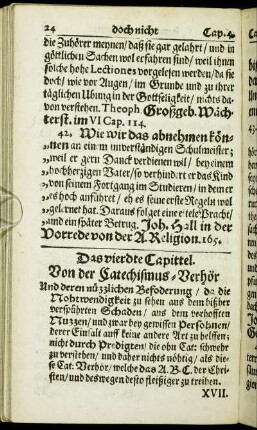 24 doch nicht Cap. 4.
die Zuhörer meynen/ daß sie gar gelahrt / und in
göttlichen Sachen wol erfahren sind/ weil ihnen
solche hohe Lectiones vorgelesen werden/ da sie
doch/ wie vor Augen/ im Grunde und zu ihrer
täglichen Übung in der Gottseligkeit/ nichts da-
von verstehen. Theoph. Großgeb. Wäch-
terst. im VI Cap. 114.
42. Wie wir das abnehmen kön-
nen an eim unverständigen Schulmeister;
„weil er gern Danck verdienen wil/ bey einem
„hochherzigen Vater/ so verhindert er das Kind
„von seinem Fortgang im Studieren/ in dem er
„es hoch anführet / eh es seine erste Regeln wol
„gelernet hat. Daraus folget eine eitele Pracht/
„und ein später Betrug. Joh. Hall in der
Vorrede von der A. Religion. 165.
Das vierdte Capittel.
Von der Catechismus-Verhör
Und deren nützlichen Beforderung / da die
Nohtwendigkeit zu sehen aus dem bißher
verspührten Schaden/ aus dem verhofften
Nutzen/ und zwar bey gewissen Persohnen/
derer Einfalt auff keine andere Art zu helffen;
nicht durch Predigten/ die ohn Cat: schwehr
zu verstehen/ und daher nichts nöhtig/ als die-
se Cat: Verhör/ welche das A.B.C. der Chri-
sten/ und deswegen desto fleißiger zu treiben.
XVII.